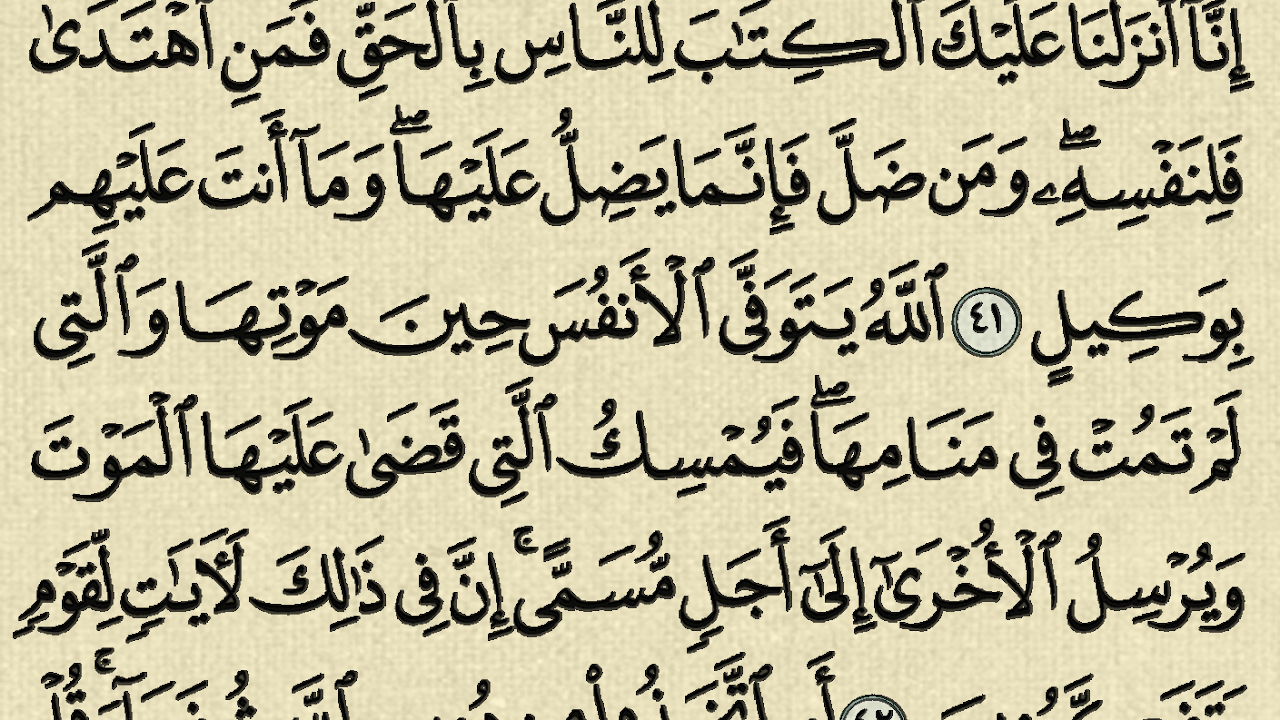 إِنَّآ أَنزَلْنَا عَلَيْكَ ٱلْكِتَـٰبَ لِلنَّاسِ بِٱلْحَقِّ فَمَنِ ٱهْتَدَىٰ
فَلِنَفْسِهِۦ ۖ وَمَن ضَلَّ فَإِنَّمَا يَضِلُّ عَلَيْهَا ۖ وَمَآ أَنتَ عَلَيْهِم
بِوَكِيلٍ ٤١ ٱللَّهُ يَتَوَفَّى ٱلْأَنفُسَ حِينَ مَوْتِهَا وَٱلَّتِى
لَمْ تَمُتْ فِى مَنَامِهَا ۖ فَيُمْسِكُ ٱلَّتِى قَضَىٰ عَلَيْهَا ٱلْمَوْتَ
وَيُرْسِلُ ٱلْأُخْرَىٰٓ إِلَىٰٓ أَجَلٍ مُّسَمًّى ۚ إِنَّ فِى ذَٰلِكَ لَـَٔايَـٰتٍ لِّقَوْمٍ
٤٢ أَمِ ٱتَّخَذُوا۟